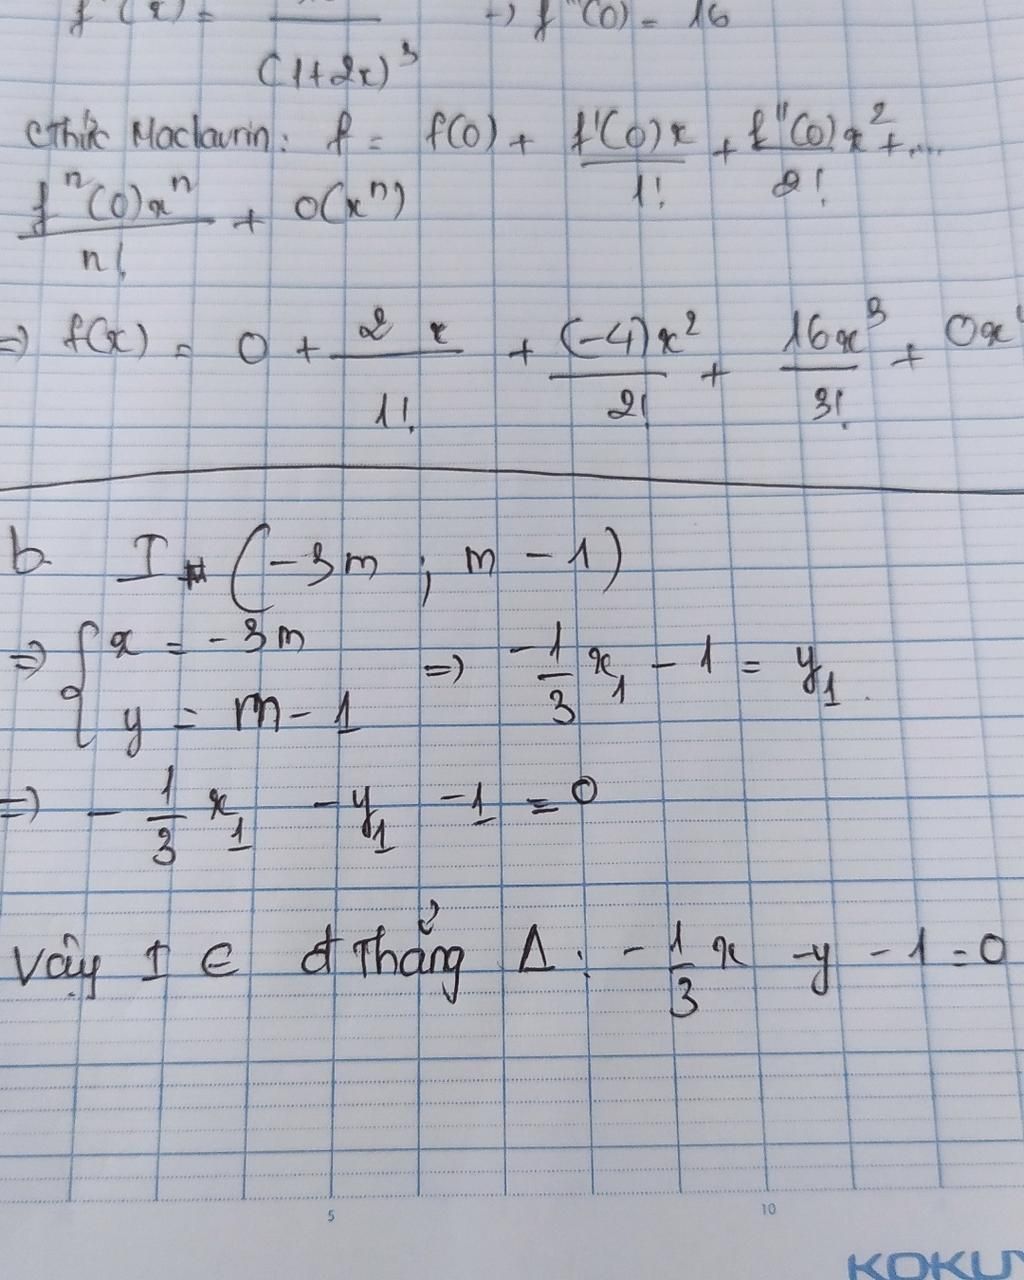 (1+2x)³ → f'''(0) = 16
cthức Maclaurin: f = f(0) + f'(0)x/1! + f''(0)x²/2! + ...
fⁿ(0)xⁿ/n! + 0(xⁿ)
=> f(x) = 0 + 2x/1! + (-4)x²/2! + 16x³/3! + 0x
b I (-3m ; m - 1)
=> { x = -3m
y = m - 1 => -1/3 x₁ - 1 = y₁.
=> -1/3 x₁ - y₁ - 1 = 0
Vậy I ∈ đ thẳng Δ: -1/3 x - y - 1 = 0
5 10